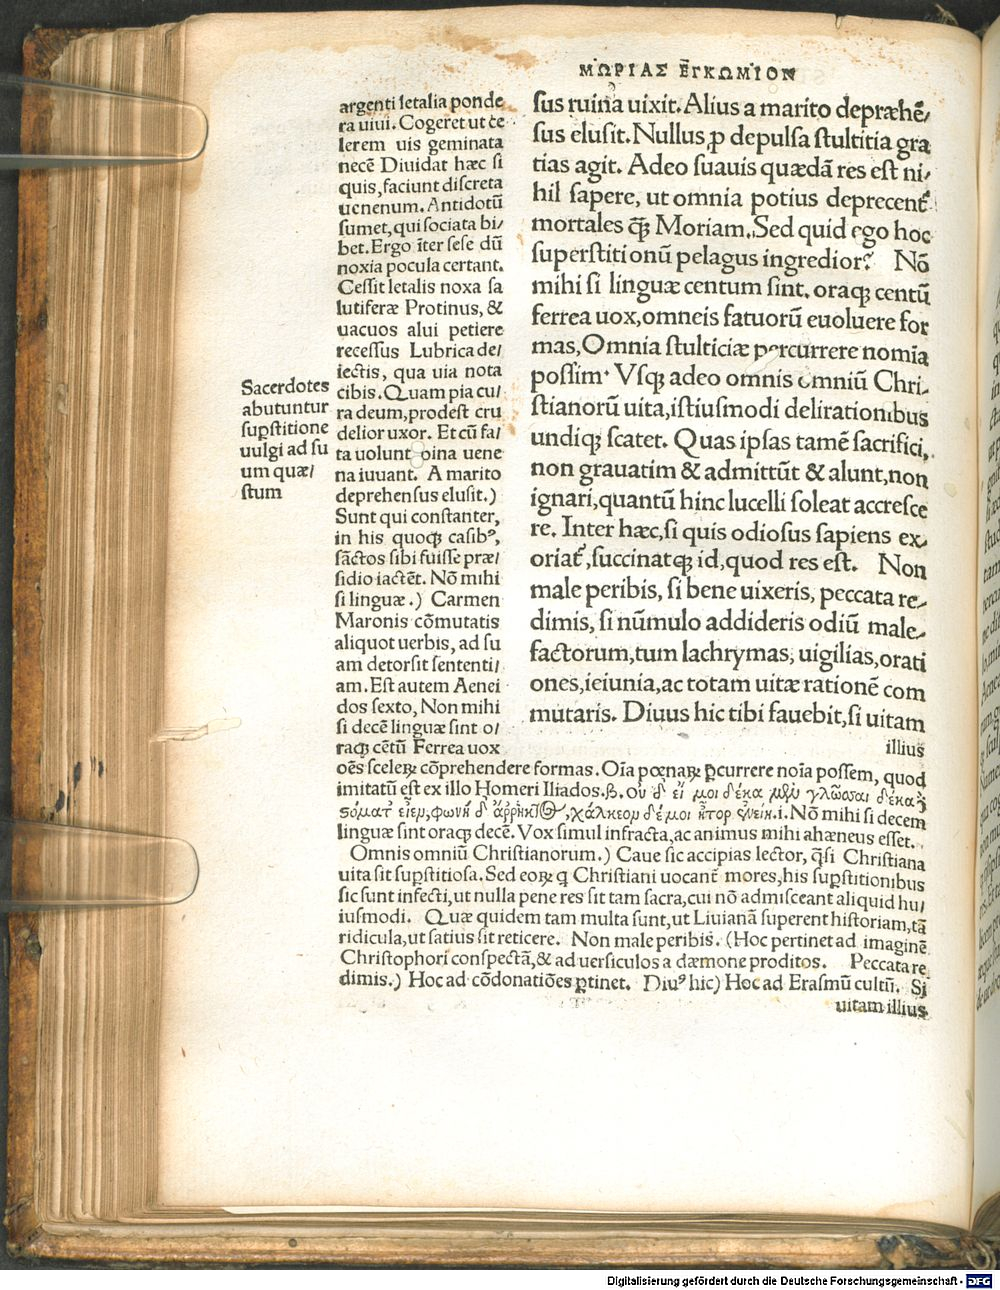 ΜΩΡΙΑΣ ΕΓΚΩΜΙΟΝ
sus ruina uixit. Alius a marito depræhē/
sus elusit. Nullus ꝓ depulsa stultitia gra
tias agit. Adeo suauis quædā res est ni/
hil sapere, ut omnia potius deprecent᷑
mortales q̄ꝫ Moriam. Sed quid ego hoc
superstitionū pelagus ingredior? Nō
mihi si linguæ centum sint, oraqꝫ centū
ferrea uox, omneis fatuorū euoluere for
mas, Omnia stulticiæ percurrere nomīa
possim. Vsqꝫ adeo omnis omniū Chri/
stianorū uita, istiusmodi delirationibus
undiqꝫ scatet. Quas ipsas tamē sacrifici,
non grauatim & admittūt & alunt, non
ignari, quantū hinc lucelli soleat accresce
re. Inter hæc, si quis odiosus sapiens ex/
oriat᷑, succinatqꝫ id, quod res est. Non
male peribis, si bene uixeris, peccata re/
dimis, si nūmulo addideris odiū male/
factorum, tum lachrymas, uigilias, orati
ones, ieiunia, ac totam uitæ rationē com
mutaris. Diuus hic tibi fauebit, si uitam
illius
argenti letalia ponde
ra uiui. Cogeret ut ce
lerem uis geminata
necē Diuidat hæc si
quis, faciunt discreta
uenenum. Antidotū
sumet, qui sociata bi/
bet. Ergo īter sese dū
noxia pocula certant.
Cessit letalis noxa sa
lutiferæ Protinus, &
uacuos alui petiere
recessus Lubrica de/
iectis, qua uia nota
cibis. Quam pia cu/
ra deum, prodest cru
delior uxor. Et cū fa/
ta uolunt bina uene
na iuuant. A marito
deprehensus elusit.)
Sunt qui constanter,
in his quoqꝫ casibꝰ,
sāctos sibi fuisse præ/
sidio iactēt. Nō mihi
si linguæ.) Carmen
Maronis cōmutatis
aliquot uerbis, ad su
am detorsit sententi/
am. Est autem Aenei
dos sexto, Non mihi
si decē linguæ sint o/
raqꝫ cētū Ferrea uox
Sacerdotes
abutuntur
suꝑstitione
uulgi ad su
um quæ/
stum
oēs sceleꝝ cōprehendere formas. Oīa pœnaꝝ ꝑcurrere noīa possem, quod
imitatū est ex illo Homeri Iliados. β. οὐ δ᾽ εἴ μοι δέκα μὲν γλῶσσαι δέκα δὲ
στόματ᾽ εἶεν, φωνὴ δ᾽ ἄρρηκτος, χάλκεον δέ μοι ἦτορ ἐνείη. i. Nō mihi si decem
linguæ sint oraqꝫ decē. Vox simul infracta, ac animus mihi ahæneus esset.
Omnis omniū Christianorum.) Caue sic accipias lector, q̄si Christiana
uita sit suꝑstitiosa. Sed eoꝝ q Christiani uocant᷑ mores, his suꝑstitionibus
sic sunt infecti, ut nulla pene res sit tam sacra, cui nō admisceant aliquid hu/
iusmodi. Quæ quidem tam multa sunt, ut Liuianā superent historiam, tā
ridicula, ut satius sit reticere. Non male peribis. (Hoc pertinet ad imaginē
Christophori conspectā, & ad uersiculos a dæmone proditos. Peccata re
dimis.) Hoc ad cōdonatiōes ꝑtinet. Diuꝰ hic) Hoc ad Erasmū cultū. Si
uitam illius
Digitalisierung gefördert durch die Deutsche Forschungsgemeinschaft - DFG